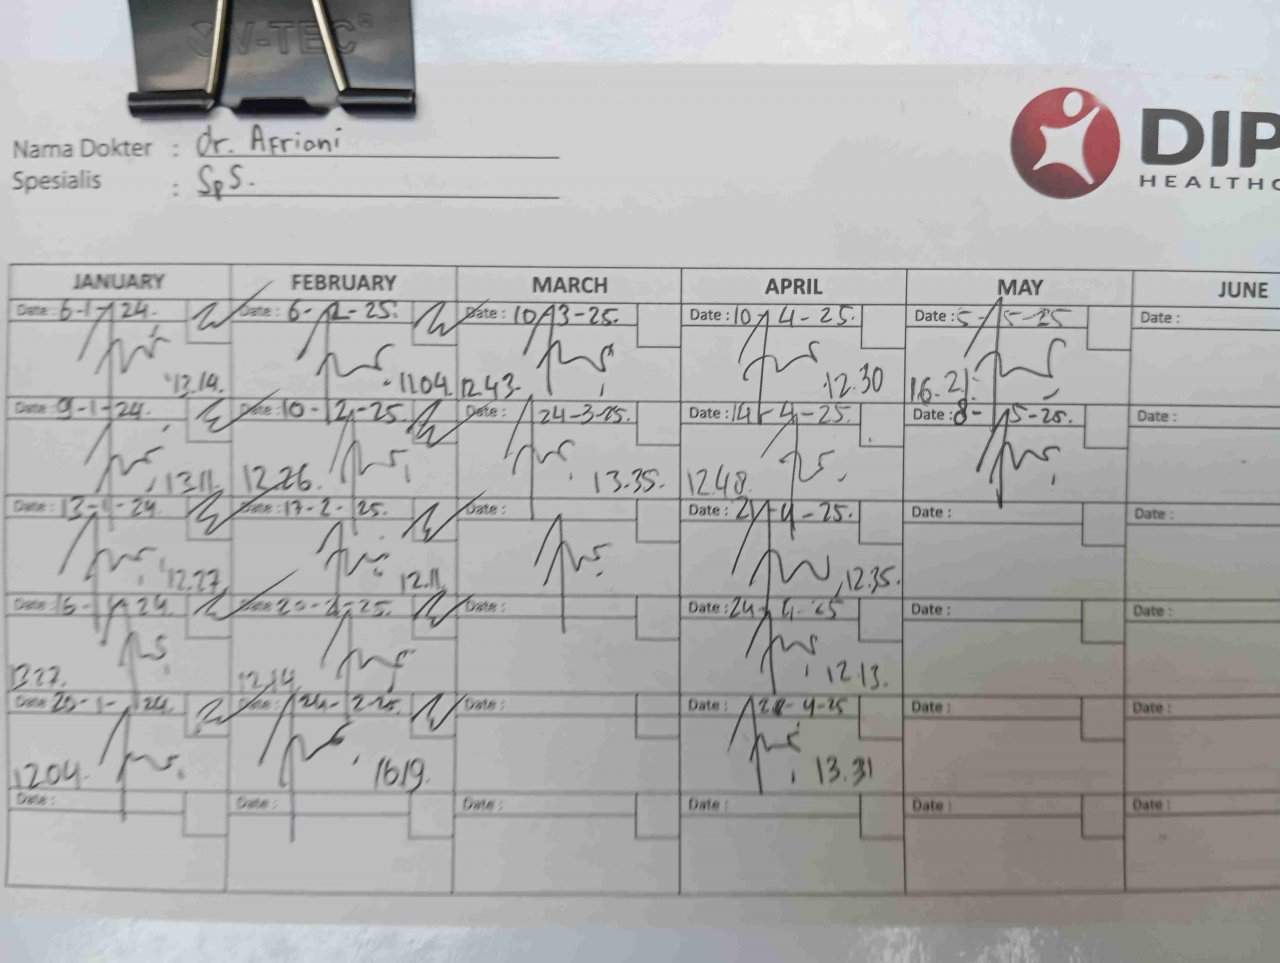 Nama Dokter : Dr. Afriani
Spesialis : SpS.
DIP
HEALTHC
JANUARY FEBRUARY MARCH APRIL MAY JUNE
Date : 6-1-24. Date : 6-2-25. Date : 10-3-25. Date : 10-4-25. Date : 5-5-25 Date :
13.14. 11.04. 12.43. 12.30 16.21.
Date : 9-1-24. Date : 10-2-25. Date : 24-3-25. Date : 14-4-25. Date : 8-5-25. Date :
13.11. 12.26. 13.35. 12.48.
Date : 13-1-24. Date : 17-2-25. Date : Date : 21-4-25. Date : Date :
12.27. 12.11. 12.35.
Date : 16-1-24. Date : 20-2-25. Date : Date : 24-4-25 Date : Date :
13.27. 12.14 12.13.
Date : 20-1-24. Date : 24-2-25. Date : Date : 28-4-25 Date : Date :
12.04. 16.19. 13.31
Date : Date : Date : Date : Date : Date :